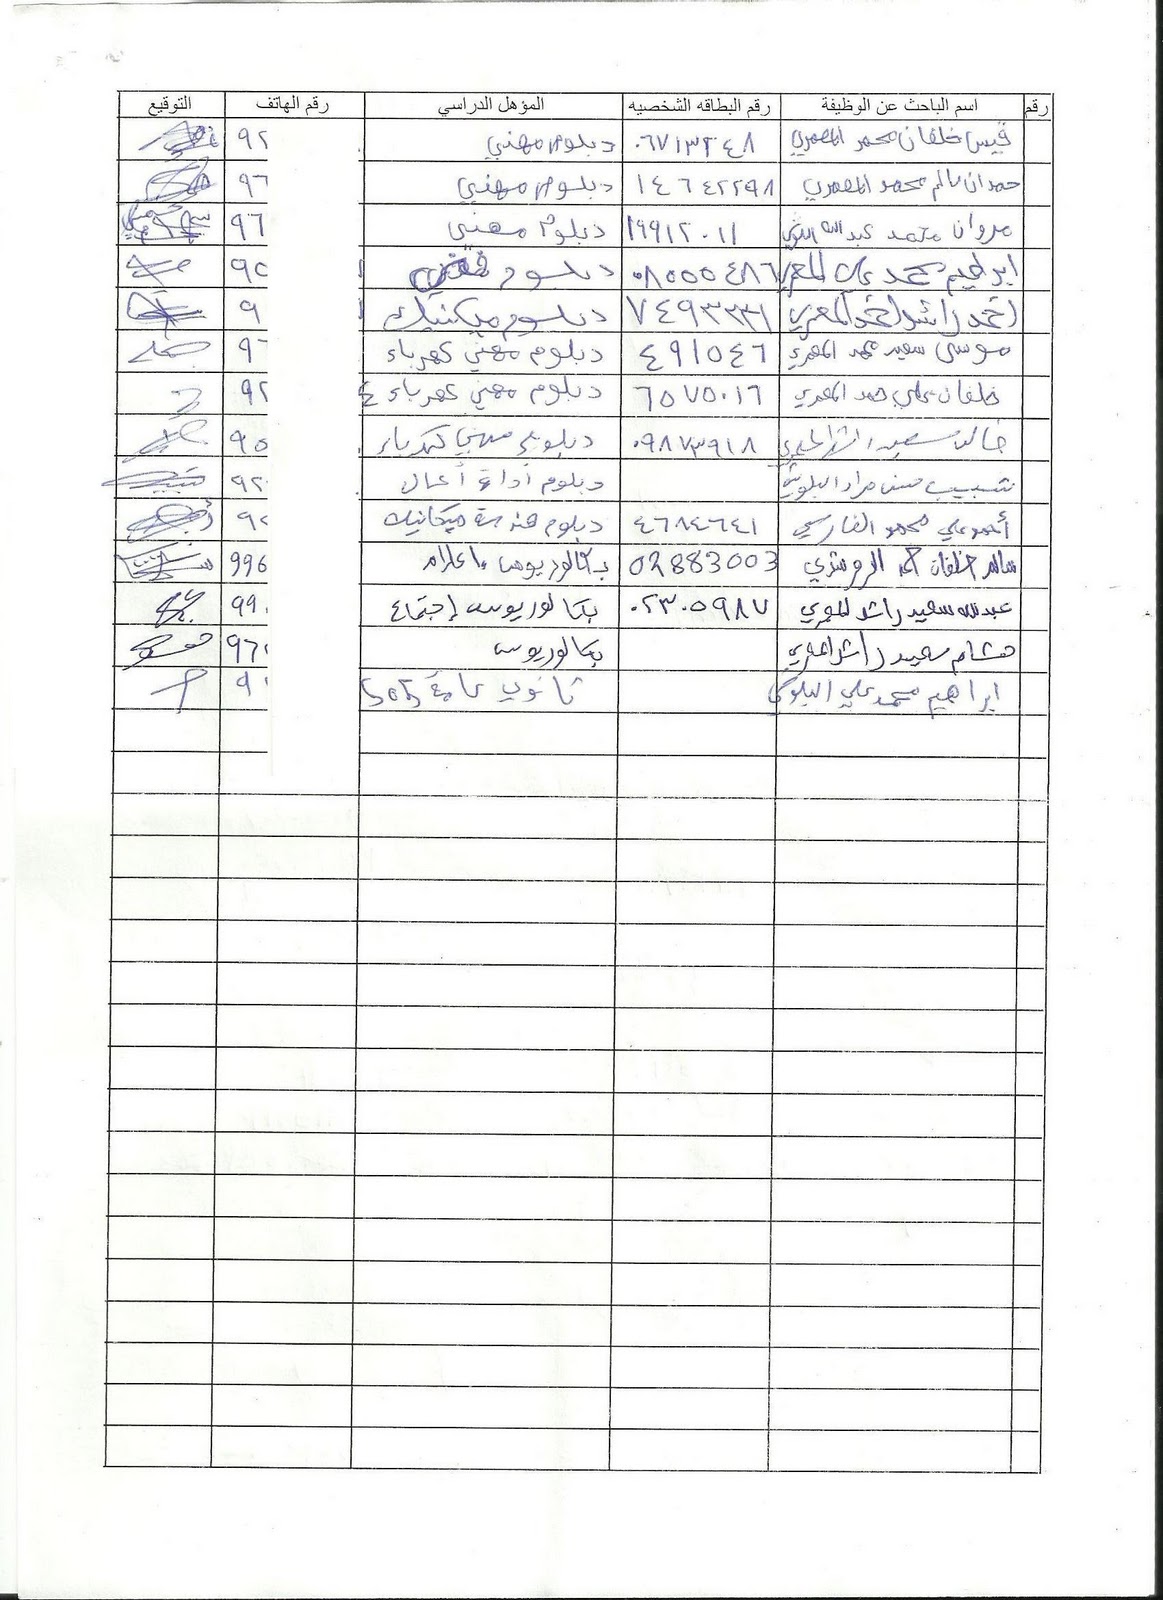 رقم اسم الباحث عن الوظيفة رقم البطاقه الشخصيه المؤهل الدراسي رقم الهاتف التوقيع
قيس خلفان محمد المعمري ٠٦٧١٣٢٤٨ دبلوم مهني ٩٢
حمدان سالم محمد المعمري ١٤٦٤٢٢٩٨ دبلوم مهني ٩٦
مروان محمد عبدالله ١٩٩١٢٠١١ دبلوم مهني ٩٦
ابراهيم محمد علي المعمري ٠٨٥٥٥٤٨٦ دبلوم ٩٥
احمد راشد احمد المعمري ٧٤٩٣٣٣١ دبلوم ميكنيك ٩
موسى سعيد محمد المعمري ٤٩١٥٤٦ دبلوم مهني كهرباء ٩
خلفان علي حمد المعمري ٦٥٧٥٠١٦ دبلوم مهني كهرباء ٩٢
خالد سعيد ٠٩٨٧٣٩١٨ دبلوم مهني كهرباء ٩٥
شبيب حسن مراد البلوشي دبلوم أدارة أعمال ٩٢
أحمد علي محمد الفارسي ٤٦٨٤٦٤١ دبلوم هندسة ميكانيك ٩٢
سالم خلفان 02883003 بكالوريوس اعلام 996
عبدالله سعيد راشد المعمري ٠٢٣٠٥٩٨٧ بكالوريوس إجتماع 99
هشام سعيد راشد المعمري بكالوريوس ٩٦
ابراهيم محمد علي البلوشي ثانوية عامة ٩